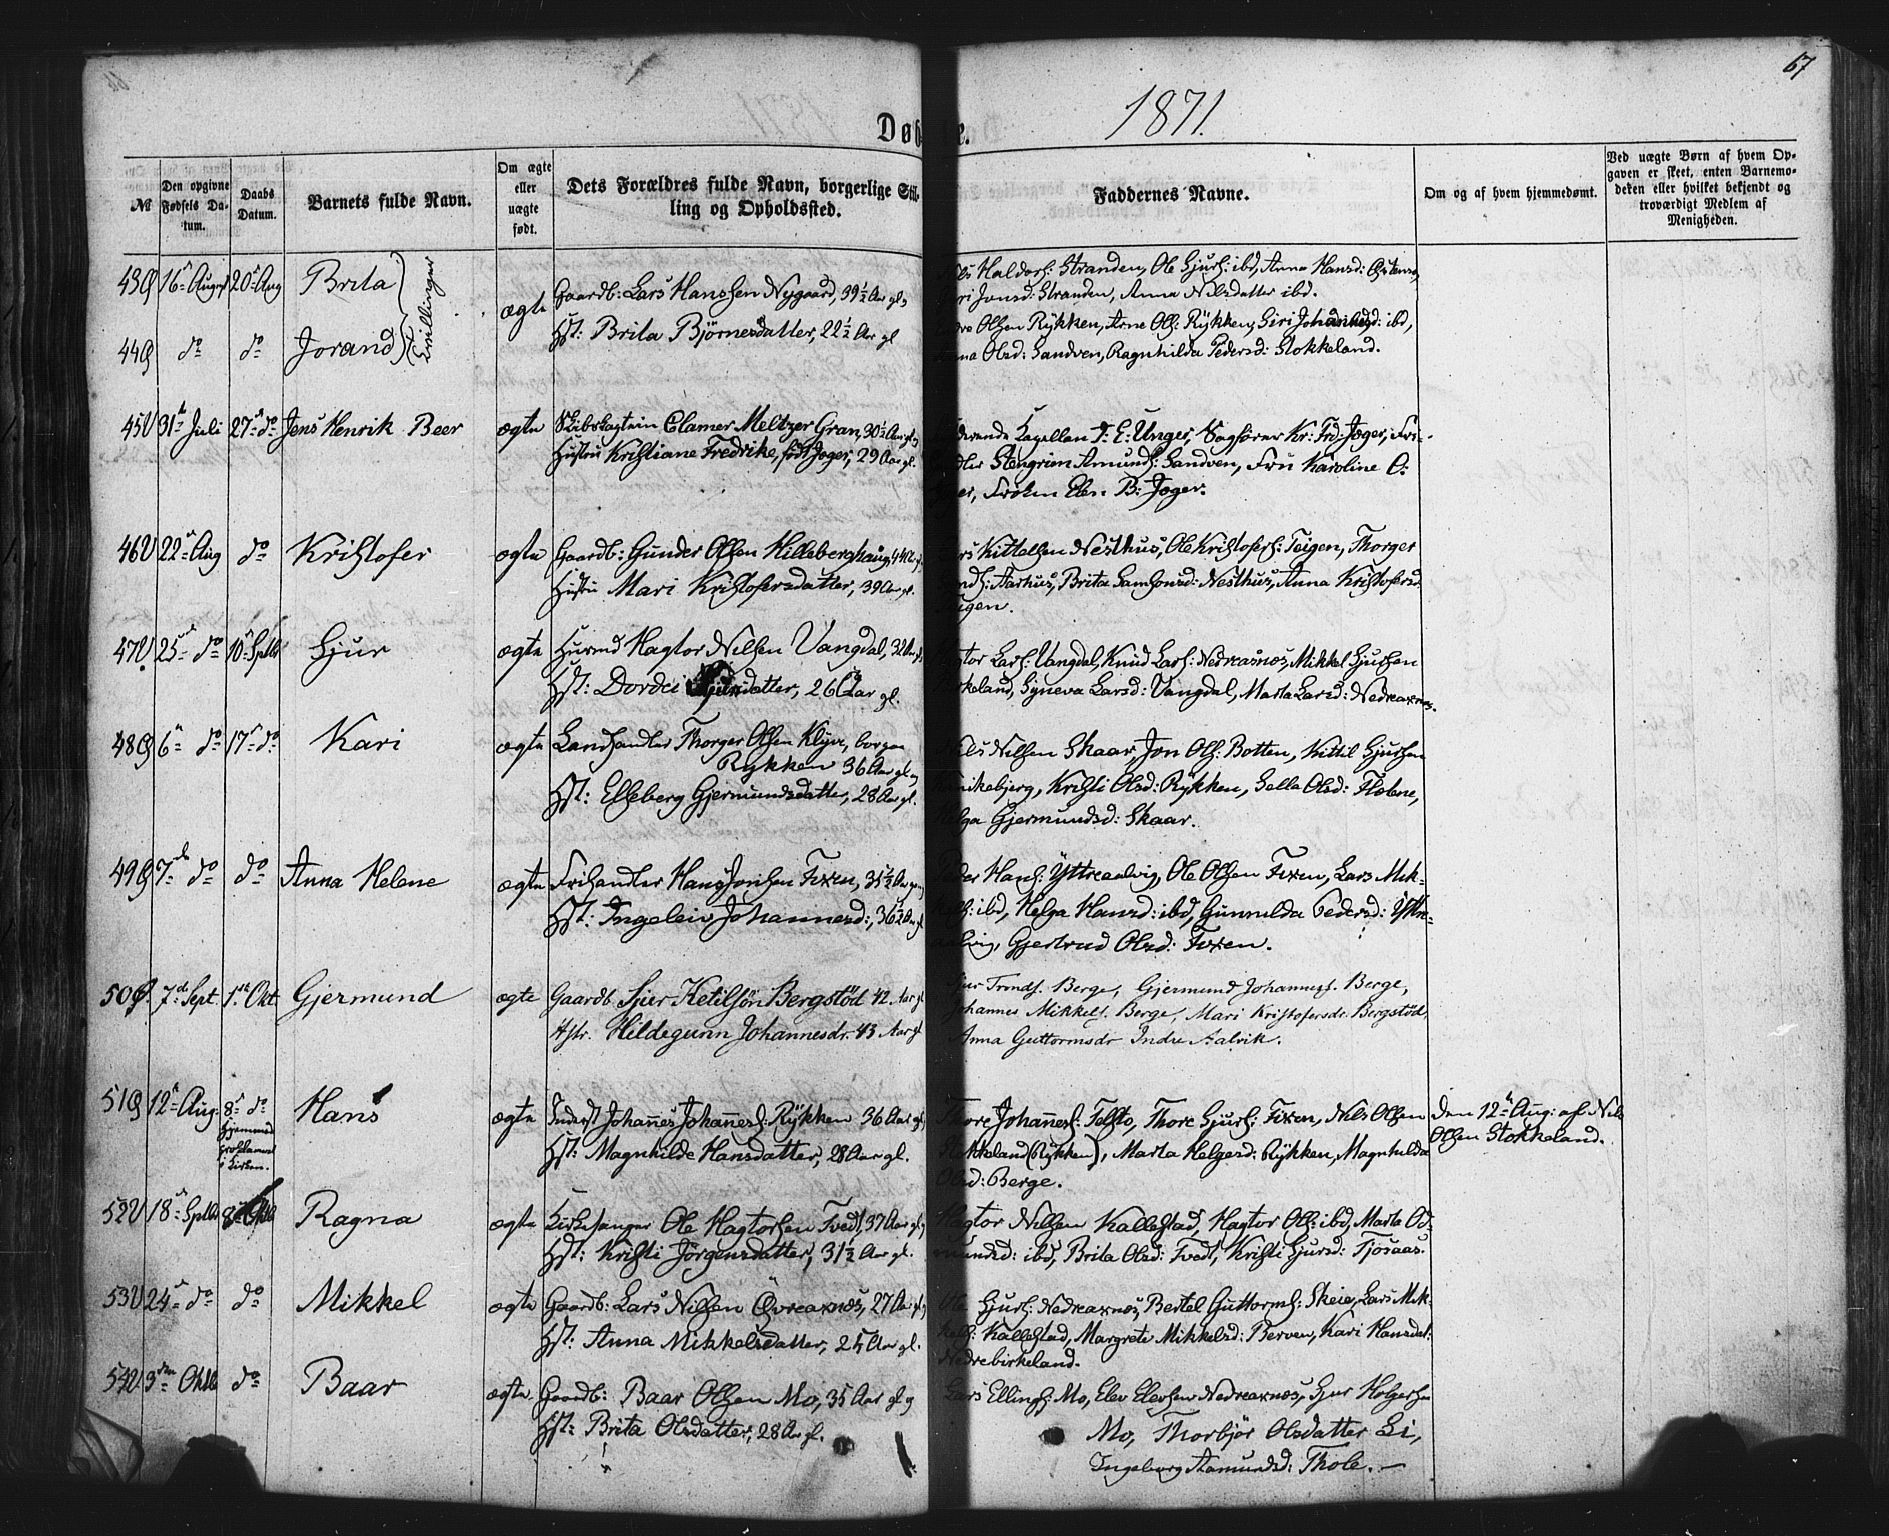 67
1871.
Døb e.
№
Den opgivne Fødsels Datum.
Daabs Datum.
Barnets fulde Navn.
Om ægte eller uægte født.
Dets Forældres fulde Navn, borgerlige Stilling og Opholdssted.
Faddernes Navne.
Om og af hvem hjemmedøbt.
Ved uægte Børn af hvem Opgaven er skeet, enten Barnemoderen eller hvilket bekjendt og troværdigt Medlem af Menigheden.
43 16 August 20 Aug Brita Tvillinger
ægte Gaardb: Lars Hanssen Nygaard, 39½ Aar gl. og
Hst: Brita Bjørnesdatter, 22½ Aar gl
Haldors: Stranden, Ole Sjurs: ibd, Anna Hansd: Østensø,
Jonsd: Stranden, Anna Nilsdatter ibd.
44 do do Jorand
Olsen Rykken, Arne Ols: Rykken, Siri Johannesd: ibd,
Olsd: Sandven, Ragnhilda Pedersd: Stokkeland.
45 31 Juli 27 do Jens Henrik Beer
ægte Skibskaptein Clamer Meltzer Gran, 30½ Aar gl. og
Hustru Kristiane Fredrike, født Jæger, 29 Aar gl.
Kapellan T. E. Unger, Sagfører Kr: Frd: Jæger, Fri-
Stengrim Amunds: Sandven, Fru Karoline O:
Frøken Elen B: Jæger.
46 22 Aug do Kristofer
ægte Gaardb: Gunder Olsen Hilleberghaug, 44 Aar gl.
Hustru Mari Kristofersdatter, 39 Aar gl.
Kittelsen Nesthus, Ole Kristofers: Teigen, Thorger
Aarhus, Brita Samsonsd: Nesthus, Anna Kristofersd:
Teigen.
47 25 do 10 Sptb Sjur
ægte Husmd Hagtor Nilsen Vangdal, 32 Aar gl.
Hst: Dordei Sjursdatter, 26 Aar gl.
Lars: Vangdal, Knud Lars: Nedreaxnes, Mikkel Sjursen
Synneva Larsd: Vangdal, Marta Larsd: Nedreaxnes.
48 6 do 17 do Kari
ægte Landhandler Thorger Olsen Klyve, borgen
Rykken 36 Aar gl. og
Hst: Elleberg Gjermundsdatter, 28 Aar gl.
Nils Nilsen Skaar, Jon Ols: Botten, Kittil Sjursen
Kristi Olsd: Rykken, Sella Olsd: Flotene,
Helga Gjermundsd: Skaar.
49 7 do do Anna Helene
ægte Frihandler Hans Jonsen Fixen, 35½ Aar
Hst: Ingeleiv Johannesd:, 36½ Aar gl
Hans: Yttreaalvig, Ole Olsen Fixen, Lars Mik-
ibd, Helga Hansd: ibd, Gunnilda Pedersd: Yttre-
aalvig, Gjertrud Olsd: Fixen.
50 7d Sept. 1st Okt. Gjermund
ægte Gaardb. Sjur Ketilsön Bergstöd 42 Aar gl
Hstr. Hildegunn Johannesdr. 43 Aar gl
Sjur Berge, Gjermund Johanness. Berge,
Johannes Mikkels. Berge, Mari Kristofersdr. Bergstöd,
Anna Guttormsdr Indre Aalvik.
51 12 Aug: 8 do Hjemmed proklameret i Kirken. Hans
ægte Inderst Johannes Johanness: Rykken 36 Aar gl.
Hst: Magnhilde Hansdatter, 28 Aar gl.
Thore Johanness: Thore Sjurs: Fixen, Nils Olsen
Stokkeland (Rykken), Marta Helgesd: Rykken, Magnhilda
Olsd: Berge.
den 12 Aug: af Nils
Olsen Stokkeland.
52 18 Sptb 8 Okt Ragna
ægte Kirkesanger Ole Hagtorsen Tvedt, 37 Aar gl. og
Hst: Kristi Jörgensdatter, 31½ Aar gl.
Hagtor Nilsen Kallestad, Hagtor Ols: ibd, Marta Od-
mundsd: ibd, Brita Olsd: Tvedt, Kristi Sjursd: Tjosaas.
53 24 do do Mikkel
ægte Gaardb: Lars Nilsen Øvreaxnes, 27 Aar gl. og
Hst: Anna Mikkelsdatter, 25 Aar gl.
Ole Sjurs: Nedreaxnes, Bertel Guttorms: Skeie, Lars Mik-
kels: Kallestad, Margrete Mikkelsd: Berven, Kari Hansdat:
Nedrebirkeland.
54 3 Oktb do Baar
ægte Gaardb: Baar Olsen Mo, 35 Aar gl og
Hst: Brita Olsdatter, 28 Aar gl.
Lars Ellings: Mo, Elev Elevsen Nedreaxnes, Sjur Holgersen
Mo, Thorbjör Olsdatter Li,
Ingeborg Aamundsd: Thole. —